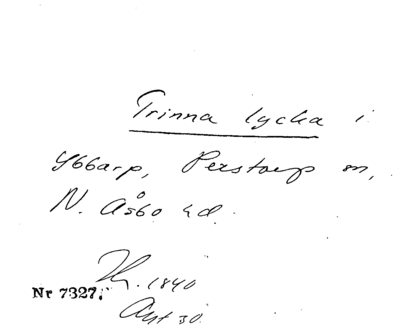 Trinna lycka i
Ybbarp, Perstorp sn,
N. Åsbo hd.
1840
Nr 7327.
30